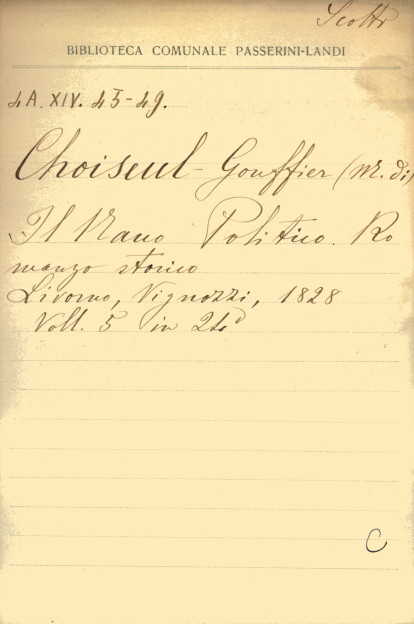 Scotti
BIBLIOTECA COMUNALE PASSERINI-LANDI
4A. XIV. 45-49.
Choiseul-Gouffier (M. di)
Il Nano Politico. Ro
manzo storico
Livorno, Vignozzi, 1828
Voll. 5 in 24º
C